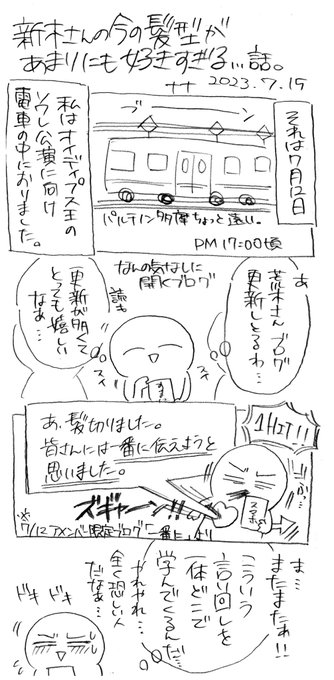 新木さんの今の髪型が
あまりにも好きすぎる…話。
2023.7.15
それは7月12日
ブーン
私はオイディプス王の
ソワレ公演に向け
電車の中におりました。
パルテノン多摩ちょっと遠い。
PM 17:00頃
なんの気なしに
開くブログ
あ
荒木さんブログ
更新しとるわ…
読も
更新が多くて
とっても嬉しい
なぁ…
スイ
スイ
1HIT!!
あ、髪切りました。
皆さんには一番に伝えようと
思いました。
スマホ
ズギャーン!!
※7/12アメンバー限定ブログ「一番に」より
ま…
またまたぁ!!
こういう
言い回しを
一体どこで
学んでくるんだ…
やれやれ…
全く恐ろしい人
だなぁ…
ドキ
ドキ